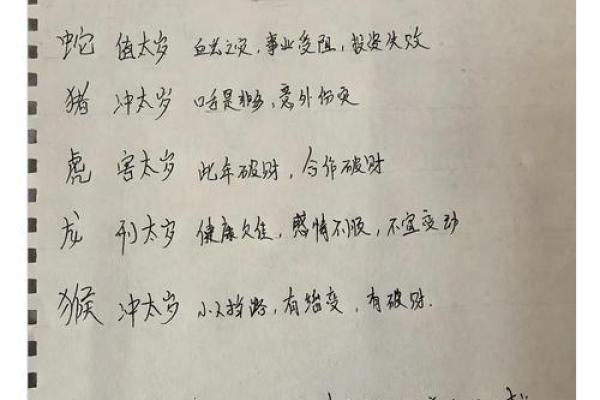 蛇 值太岁 血光之灾，事业受阻，投资失败
猪 冲太岁 口舌是非多，意外伤灾
虎 害太岁 此年破财，合作破财
龙 刑太岁 健康欠佳，感情不顺，不宜变动
猴 冲太岁 小人挡路，有婚变，有破财.